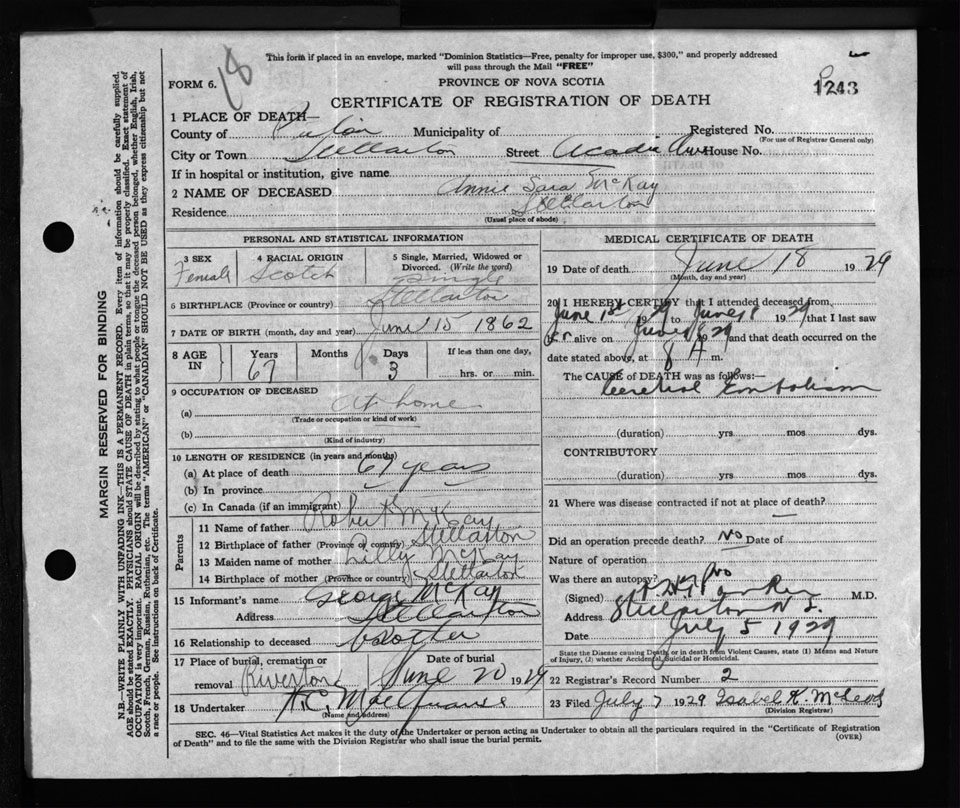 This form if placed in an envelope, marked "Dominion Statistics—Free, penalty for improper use, $300," and properly addressed
will pass through the Mail "FREE"
18
FORM 6.
PROVINCE OF NOVA SCOTIA
1243
CERTIFICATE OF REGISTRATION OF DEATH
1 PLACE OF DEATH—
County of Pictou Municipality of Registered No.
(For use of Registrar General only)
City or Town Stellarton Street Acadia Ave House No.
If in hospital or institution, give name
2 NAME OF DECEASED Annie Sara McKay
Residence Stellarton
(Usual place of abode)
PERSONAL AND STATISTICAL INFORMATION
3 SEX 4 RACIAL ORIGIN 5 Single, Married, Widowed or
Divorced. (Write the word)
Female Scotch Single
6 BIRTHPLACE (Province or country) Stellarton
7 DATE OF BIRTH (month, day and year) June 15 1862
8 AGE IN Years Months Days If less than one day,
67 3 hrs. or min.
9 OCCUPATION OF DECEASED
(a) At home
(Trade or occupation or kind of work)
(b)
(Kind of industry)
10 LENGTH OF RESIDENCE (in years and months)
(a) At place of death 67 years
(b) In province
(c) In Canada (if an immigrant)
Parents
11 Name of father Robert McKay
12 Birthplace of father (Province or country) Stellarton
13 Maiden name of mother McKay
14 Birthplace of mother (Province or country) Stellarton
15 Informant's name George McKay
Address Stellarton
16 Relationship to deceased brother
17 Place of burial, cremation or Date of burial
removal Riverton June 20 1929
18 Undertaker
(Name and address)
MEDICAL CERTIFICATE OF DEATH
19 Date of death June 18 1929
(Month, day and year)
20 I HEREBY CERTIFY that I attended deceased from
June 1st 1929 to June 18 1929 that I last saw
her alive on June 1929 and that death occurred on the
date stated above, at 8 A m.
The CAUSE of DEATH was as follows:—
Cerebral Embolism
(duration) yrs mos dys.
CONTRIBUTORY
(duration) yrs mos dys.
21 Where was disease contracted if not at place of death?
Did an operation precede death? No Date of
Nature of operation
Was there an autopsy? No
(Signed) M.D.
Address Stellarton N.S.
Date July 5 1929
State the Disease causing Death, or in death from Violent Causes, state (1) Means and Nature
of Injury, (2) whether Accidental, Suicidal or Homicidal.
22 Registrar's Record Number 2
23 Filed July 7 1929 Isabel K. McLeod
(Division Registrar)
SEC. 46—Vital Statistics Act makes it the duty of the Undertaker or person acting as Undertaker to obtain all the particulars required in the "Certificate of Registration
of Death" and to file the same with the Division Registrar who shall issue the burial permit.
(OVER)
MARGIN RESERVED FOR BINDING
N.B.—WRITE PLAINLY WITH UNFADING INK—THIS IS A PERMANENT RECORD. Every item of information should be carefully supplied.
AGE should be stated EXACTLY. PHYSICIANS should STATE CAUSE OF DEATH in plain terms, so that it may be properly classified. Exact statement of
OCCUPATION is very important. RACIAL ORIGIN will be described by stating to what people or tongue the deceased person belonged, whether English, Irish,
Scotch, French, German, Russian, Ruthenian, etc. The terms "AMERICAN" or "CANADIAN" SHOULD NOT BE USED as they express citizenship but not
a race or people. See instructions on back of Certificate.